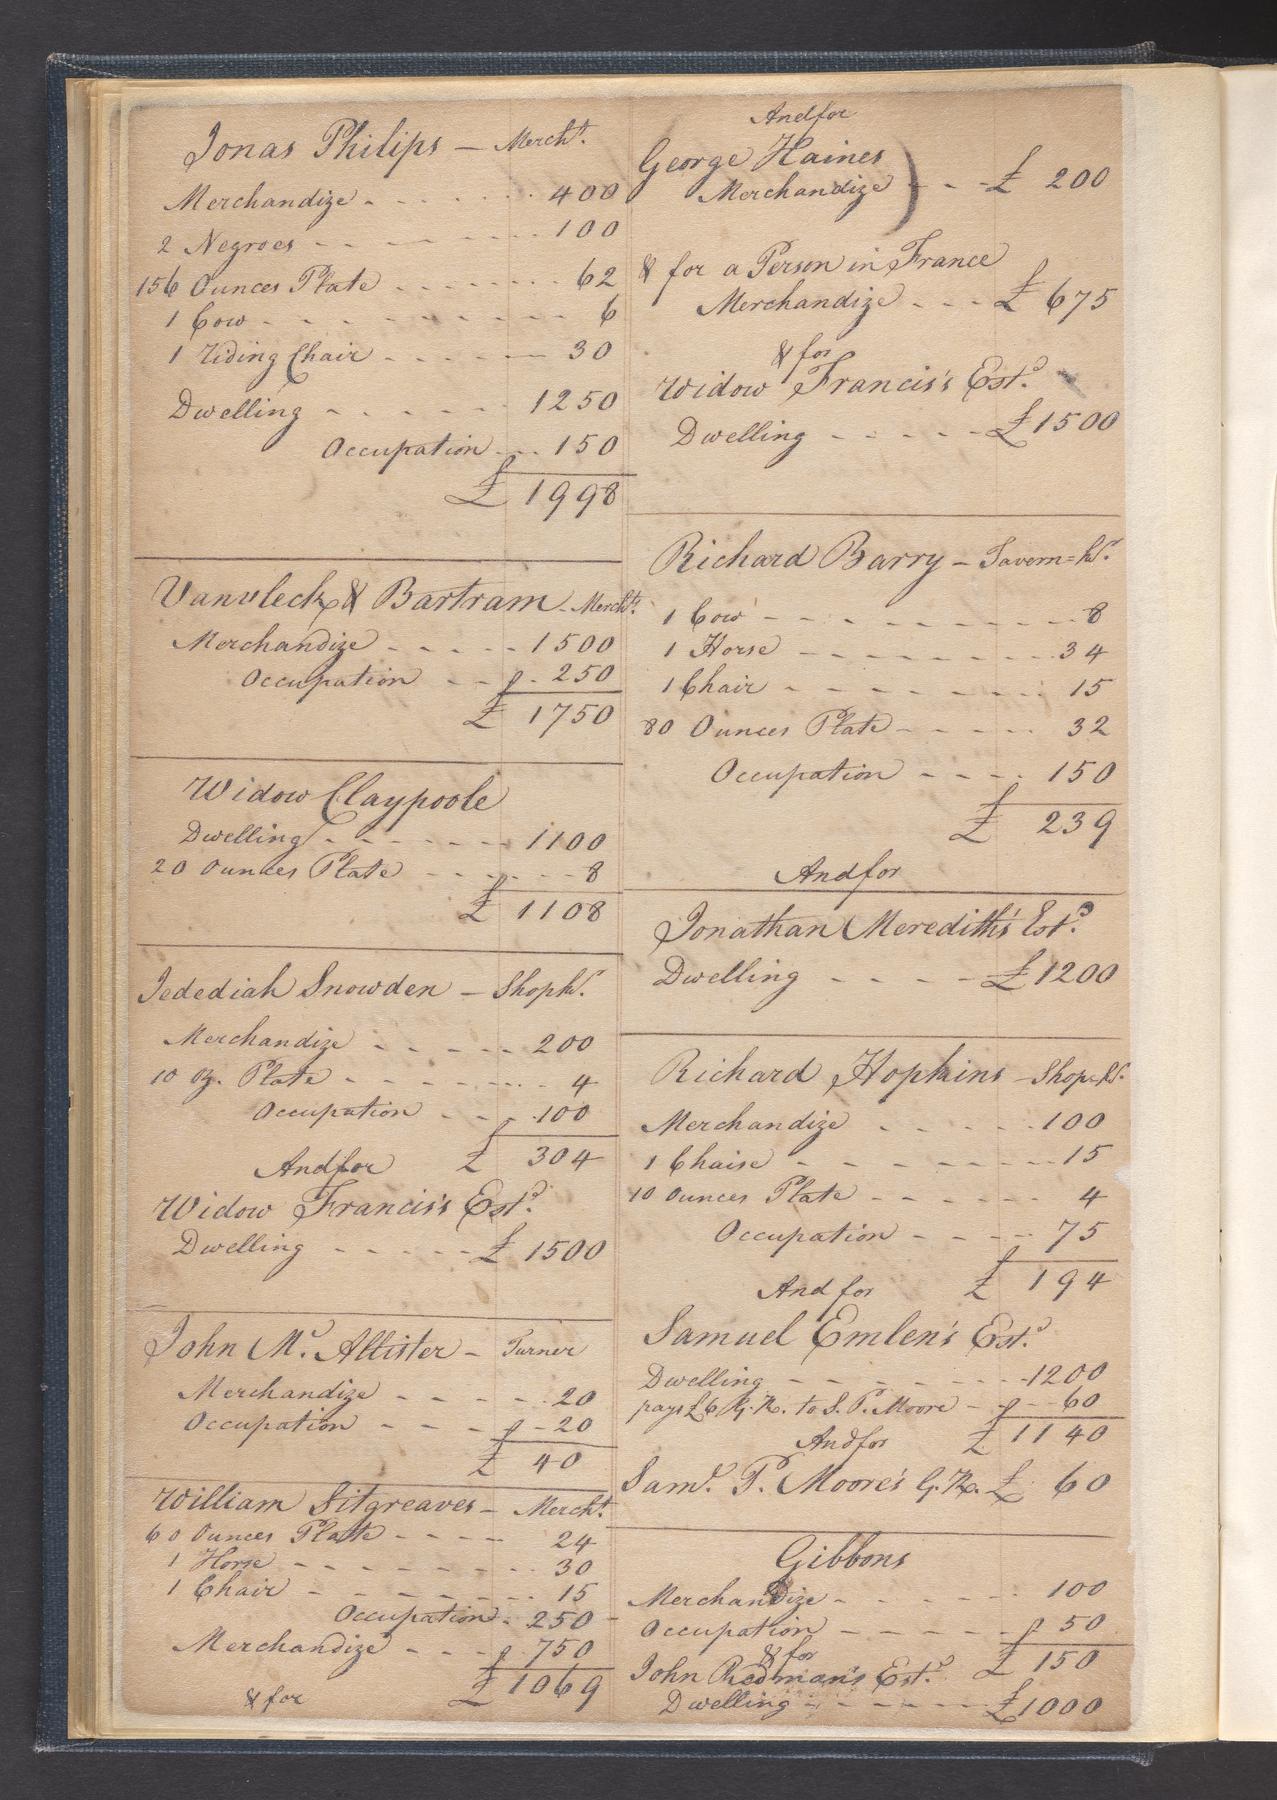 Jonas Philips – Mercht.
Merchandize - - - - 400
2 Negroes - - - - 100
156 Ounces Plate - - - - 62
1 Cow - - - - 6
1 Riding Chair - - - - 30
Dwelling - - - - 1250
Occupation - - 150
£ 1998
Vanvleck & Bartram – Merchts.
Merchandize - - - - 1500
Occupation - - - 250
£ 1750
Widow Claypoole
Dwelling - - - - 1100
20 Ounces Plate - - - - 8
£ 1108
Jedediah Snowden – Shopkr.
Merchandize - - - - 200
10 oz. Plate - - - - 4
Occupation - - - 100
And for £ 304
Widow Francis's Estd.
Dwelling - - - - £ 1500
John Mc. Allister – Turner
Merchandize - - - - 20
Occupation - - - - 20
£ 40
William Sitgreaves – Mercht.
60 Ounces Plate - - - - 24
1 Horse - - - - 30
1 Chair - - - - 15
Occupation - 250
Merchandize - - - 750
£ 1069
& for
And for
George Haines
Merchandize ) - - - £ 200
& for a Person in France
Merchandize - - - £ 675
& for
Widow Francis's Estd.
Dwelling - - - - £ 1500
Richard Barry – Tavern=kr.
1 Cow - - - - 8
1 Horse - - - - 34
1 Chair - - - - 15
80 Ounces Plate - - - - 32
Occupation - - - - 150
£ 239
And for
Jonathan Meredith's Estd.
Dwelling - - - - £ 1200
Richard Hopkins – Shop=kr.
Merchandize - - - - 100
1 Chaise - - - - 15
10 Ounces Plate - - - - 4
Occupation - - - - 75
And for £ 194
Samuel Emlen's Estd.
Dwelling - - - - 1200
pays £6 G. R. to S. P. Moore - - - 60
And for £ 1140
Saml. P. Moore's G. R. £ 60
Gibbons
Merchandize - - - - 100
Occupation - - - - 50
& for £ 150
John Redman's Estd.
Dwelling - - - - £ 1000